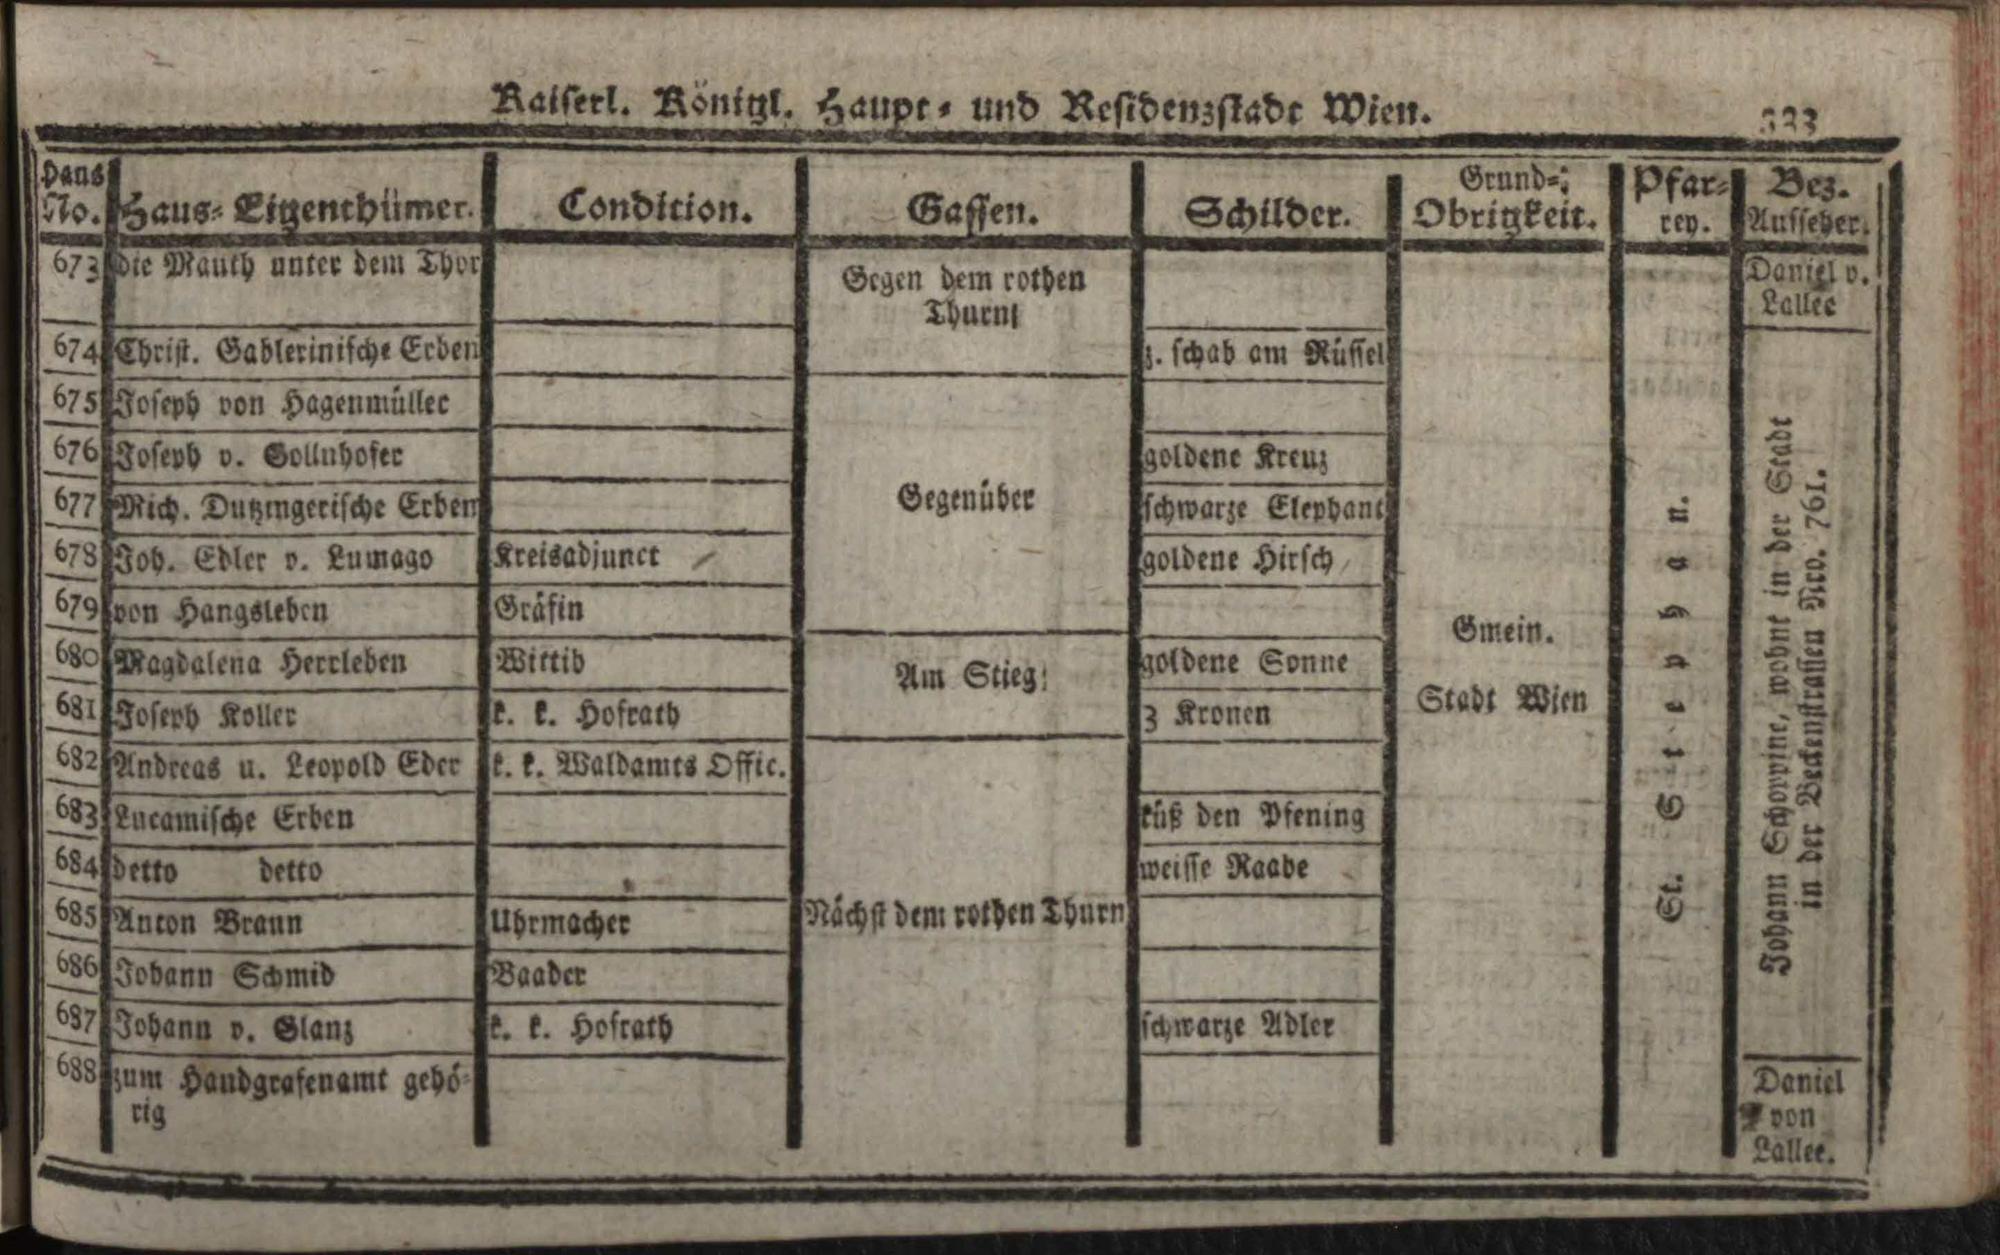 Kaiserl. Königl. Haupt- und Residenzstadt Wien. 333
Haus No. Haus-Eigenthümer. Condition. Gassen. Schilder. Grund-Obrigkeit. Pfarrey. Bez. Aufseher.
673 die Mauth unter dem Thor Gegen dem rothen Thurn Daniel v. Lallee
674 Christ. Gablerinische Erben z. schab am Rüssel
675 Joseph von Hagenmüller
676 Joseph v. Gollnhofer goldene Kreuz
Gegenüber
677 Mich. Dutzingerische Erben schwarze Elephant
678 Joh. Edler v. Lumago Kreisadjunct goldene Hirsch
679 von Hangsleben Gräfin
680 Magdalena Herrleben Wittib Am Stieg goldene Sonne
681 Joseph Koller k. k. Hofrath 3 Kronen
Gmein. Stadt Wien
St. Stephan.
Johann Schoppine, wohnt in der Stadt
in der Beckenstrassen Nro. 761.
682 Andreas u. Leopold Eder k. k. Waldamts Offic.
683 Lucamische Erben küß den Pfening
684 detto detto weisse Raabe
685 Anton Braun Uhrmacher Nächst dem rothen Thurn
686 Johann Schmid Baader
687 Johann v. Glanz k. k. Hofrath schwarze Adler
688 zum Handgrafenamt gehö-
rig
Daniel
von
Lallee.